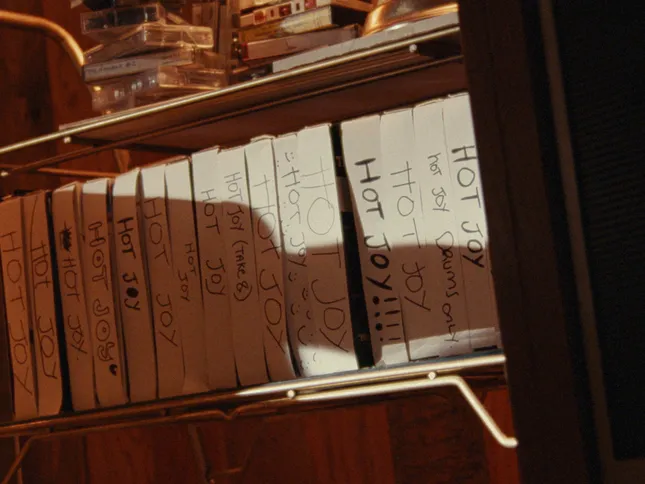 HOT JOY
HOt JOY
HOT JOY
HOT JOY
HOT JOY
HOT JOY
HOT JOY
HOT JOY
HOT JOY (TAKE 8)
HOT JOY
HOT JOY
HOT JOY
HOT JOY!!!!
HOT JOY
HOT JOY DRUMS ONLY
HOT JOY